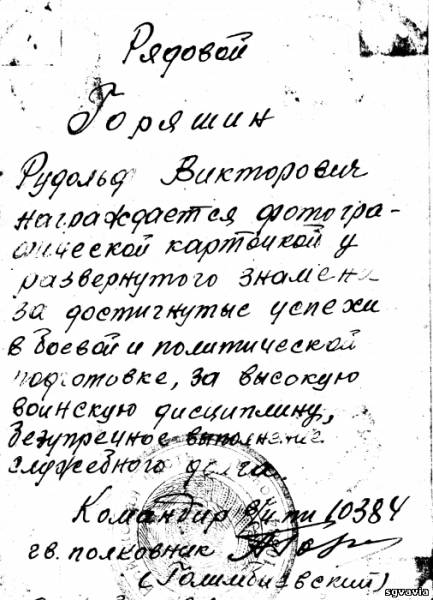 Рядовой
Горяшин
Рудольф Викторович
награждается фотогра-
фической карточкой у
развернутого знамени
за достигнутые успехи
в боевой и политической
подготовке, за высокую
воинскую дисциплину,
безупречное выполнение
служебного долга.
Командир в/ч пп 10384
гв. полковник
sgvavia